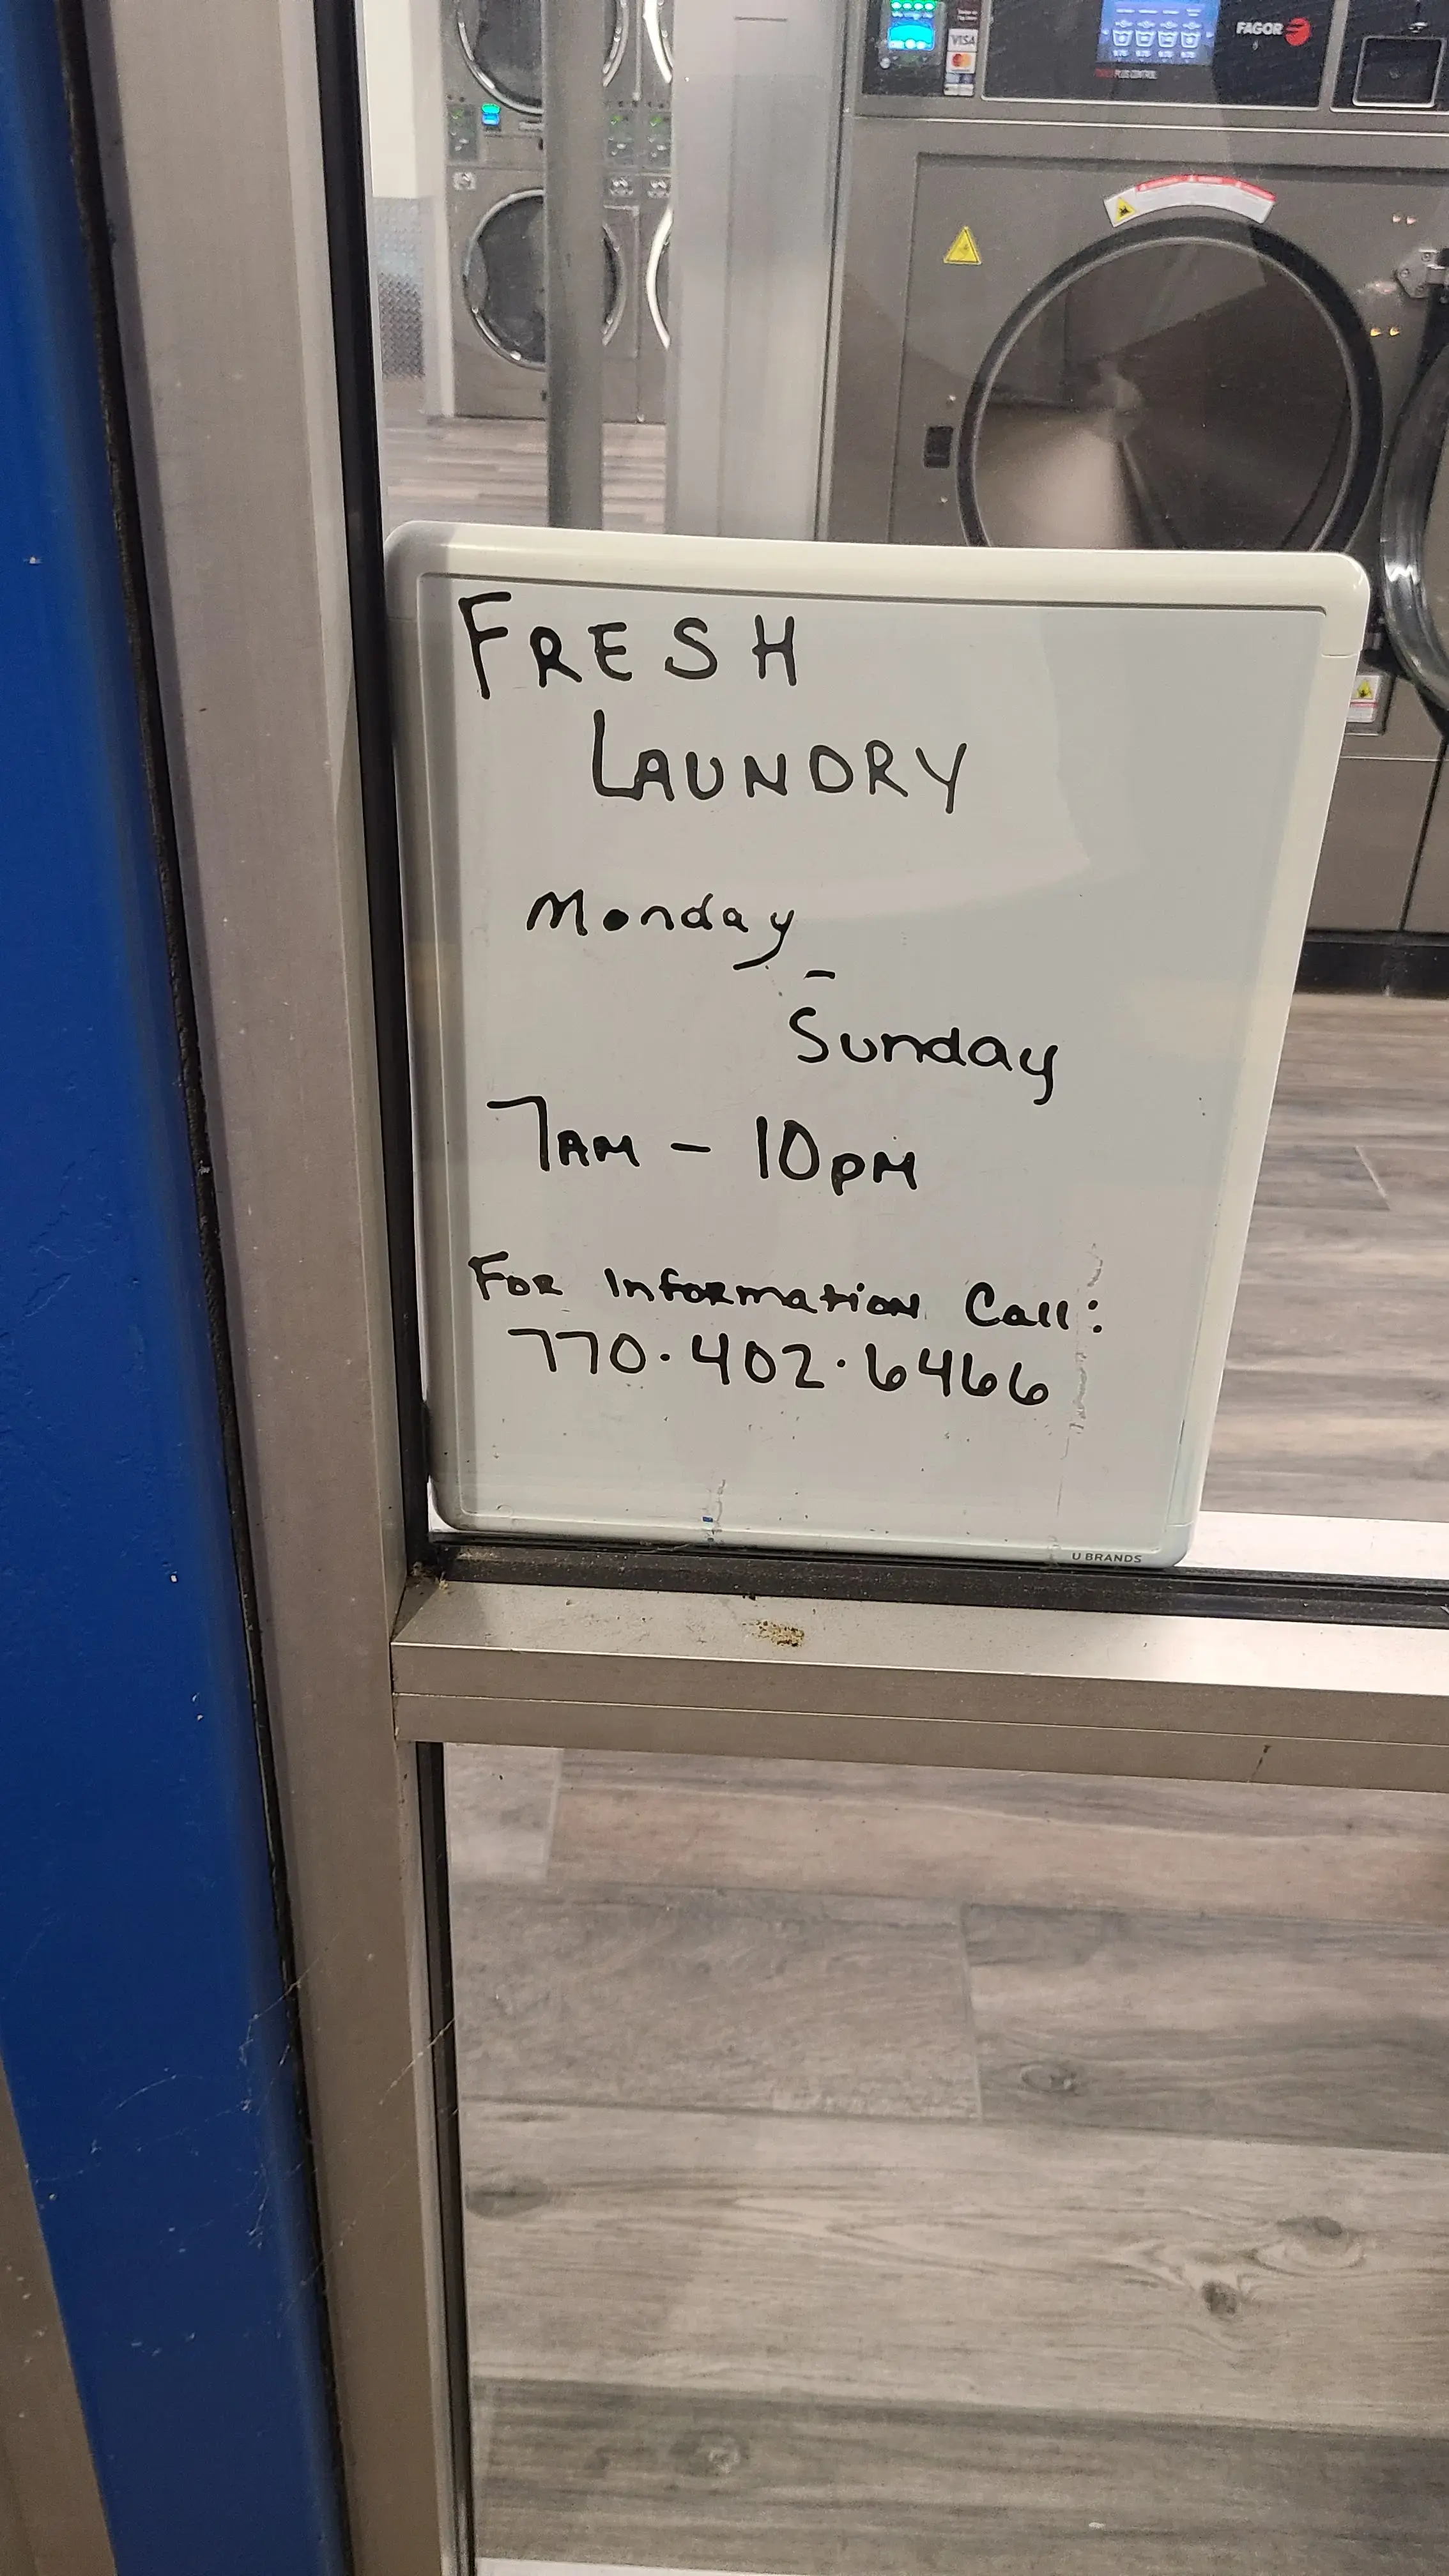 VISA
FAGOR
PLUS CONTROL
FRESH
LAUNDRY
Monday
-
Sunday
7AM - 10pM
FOR InFORmation Call:
770.402.6466
U BRANDS